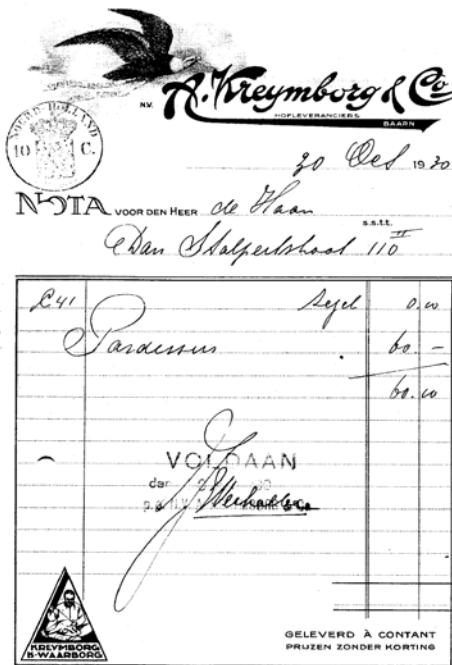 N.V. A. Kreymborg & Co
HOFLEVERANCIERS
BAARN
NOORD-HOLLAND
10 C.
30 Oct 1930
NOTA VOOR DEN HEER de Haan
s.s.t.t.
Dan Stalpertstraat 110 II
£41 Zegel 0.10
Pardessus 60.-
60.10
VOLDAAN
den
p.p. N.V.
KREYMBORG
K-WAARBORG
GELEVERD À CONTANT
PRIJZEN ZONDER KORTING